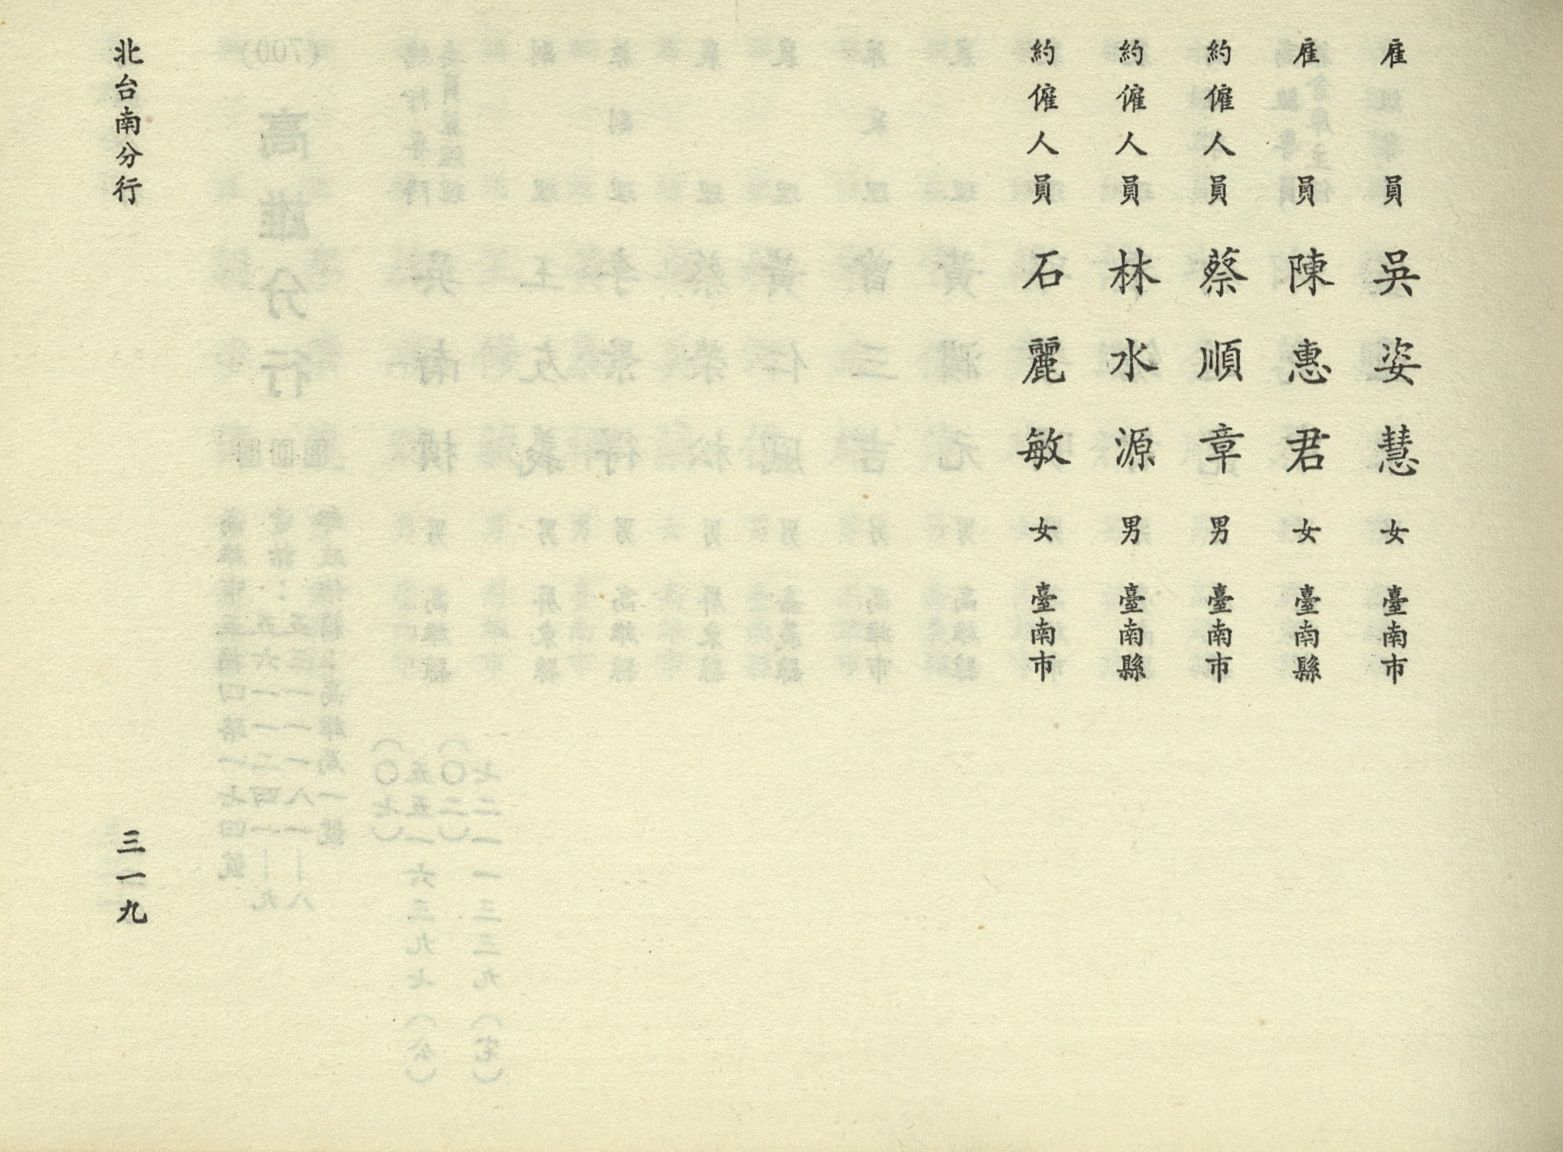 雇員 吳姿慧 女 臺南市
雇員 陳惠君 女 臺南縣
約僱人員 蔡順章 男 臺南市
約僱人員 林水源 男 臺南縣
約僱人員 石麗敏 女 臺南市
北台南分行 三一九